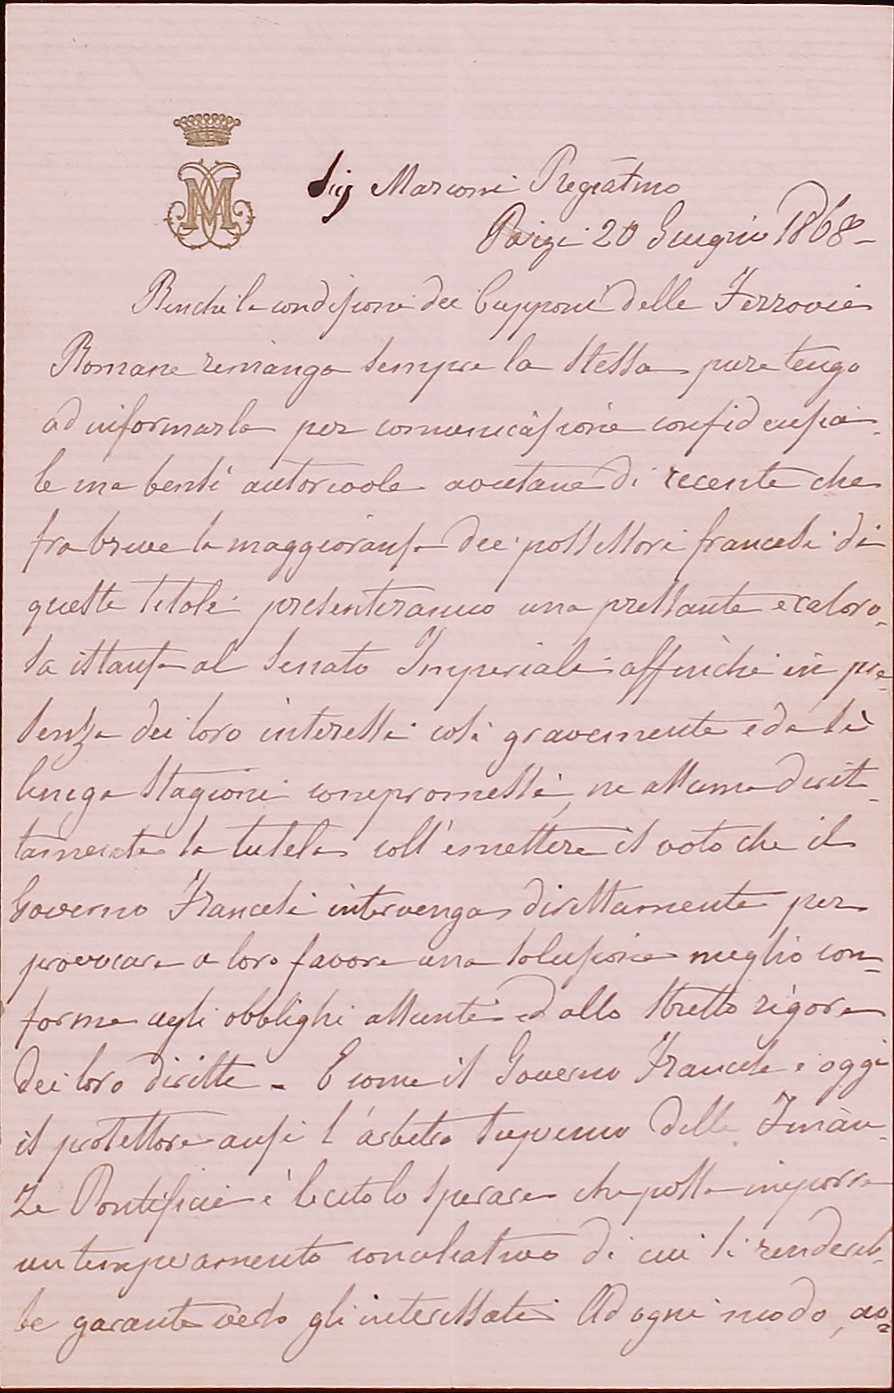 Sig Marconi Pregiatmo
Parigi 20 Giugno 1868 -
Benchè la condizione dei Cupponi delle Ferrovie
Romane rimanga sempre la stessa pure tengo
ad informarla per comunicazione confidenzia-
le ma bensì autorevole avutane di recente che
fra breve la maggioranza dei possessori francesi di
questi titoli presenteranno una pressante e caloro-
sa istanza al Senato Imperiale affinchè in pre-
senza dei loro interessi così gravemente e da sì
lunga stagione compromessi, ne assuma dirit-
tamente la tutela coll'emettere il voto che il
Governo Francese intervenga direttamente per
provocare a loro favore una soluzione meglio con-
forme agli obblighi assunti ed allo stretto rigore
dei loro diritti - E come il Governo Francese è oggi
il protettore anzi l'arbitro supremo delle Finan-
ze Pontificie è lecito lo sperare che possa imporre
un temperamento conciliativo di cui si rendereb-
be garante verso gli interessati Ad ogni modo,